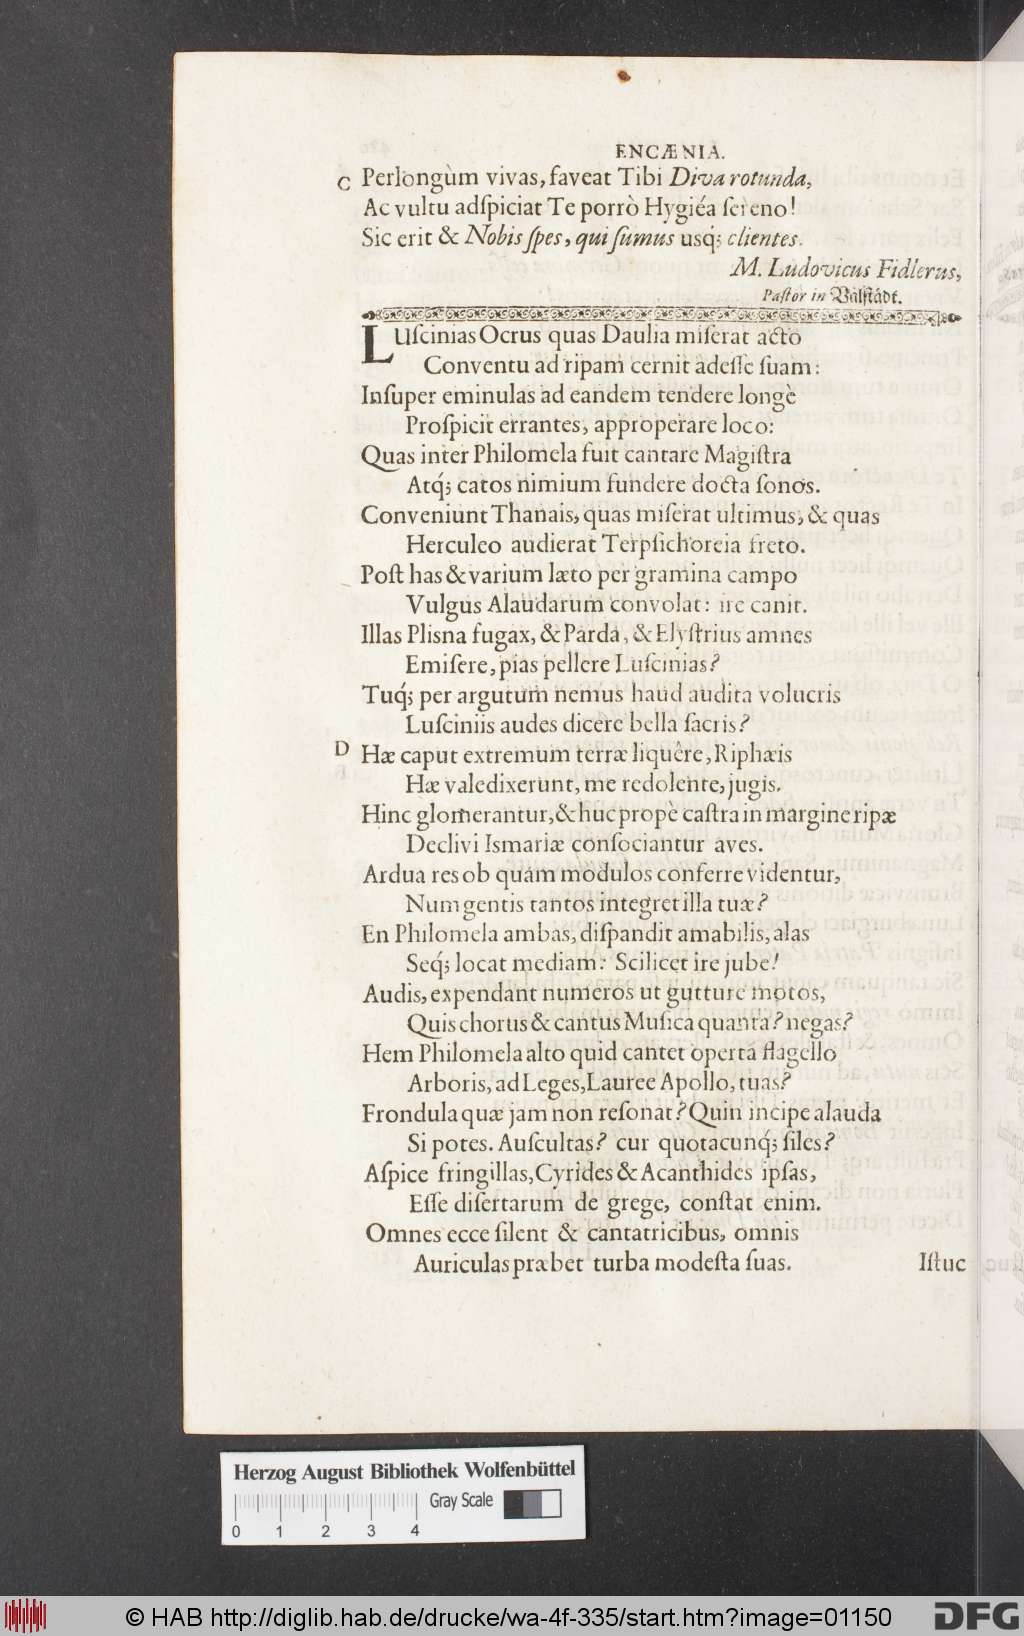 ENCÆNIA.
C Perlongùm vivas, faveat Tibi Diva rotunda,
Ac vultu adſpiciat Te porrò Hygiéa ſereno!
Sic erit & Nobis ſpes, qui ſumus usq́; clientes.
M. Ludovicus Fidlerus,
Paſtor in Välſtädt.
LUſcinias Ocrus quas Daulia miſerat acto
Conventu ad ripam cernit adeſſe ſuam:
Inſuper eminulas ad eandem tendere longè
Proſpicit errantes, approperare loco:
Quas inter Philomela fuit cantare Magiſtra
Atq́; catos nimium fundere docta ſonos.
Conveniunt Thanais, quas miſerat ultimus, & quas
Herculeo audierat Terpſichoreia freto.
Poſt has & varium læto per gramina campo
Vulgus Alaudarum convolat: ire canit.
Illas Pliſna fugax, & Parda, & Elyſtrius amnes
Emiſere, pias pellere Luſcinias?
Tuq́; per argutum nemus haud audita volucris
Luſciniis audes dicere bella ſacris?
D Hæ caput extremum terræ liquêre, Riphæis
Hæ valedixerunt, me redolente, jugis.
Hinc glomerantur, & huc propè caſtra in margine ripæ
Declivi Ismariæ conſociantur aves.
Ardua res ob quam modulos conferre videntur,
Num gentis tantos integret illa tuæ?
En Philomela ambas, diſpandit amabilis, alas
Seq́; locat mediam: Scilicet ire jube!
Audis, expendant numeros ut gutture motos,
Quis chorus & cantus Muſica quanta? negas?
Hem Philomela alto quid cantet operta flagello
Arboris, ad Leges, Lauree Apollo, tuas?
Frondula quæ jam non reſonat? Quin incipe alauda
Si potes. Auſcultas? cur quotacunq́; ſiles?
Aſpice fringillas, Cyrides & Acanthides ipſas,
Eſſe diſertarum de grege, conſtat enim.
Omnes ecce ſilent & cantatricibus, omnis
Auriculas præbet turba modeſta ſuas.
Iſtuc
Herzog August Bibliothek Wolfenbüttel
Gray Scale
0 1 2 3 4
© HAB http://diglib.hab.de/drucke/wa-4f-335/start.htm?image=01150
DFG